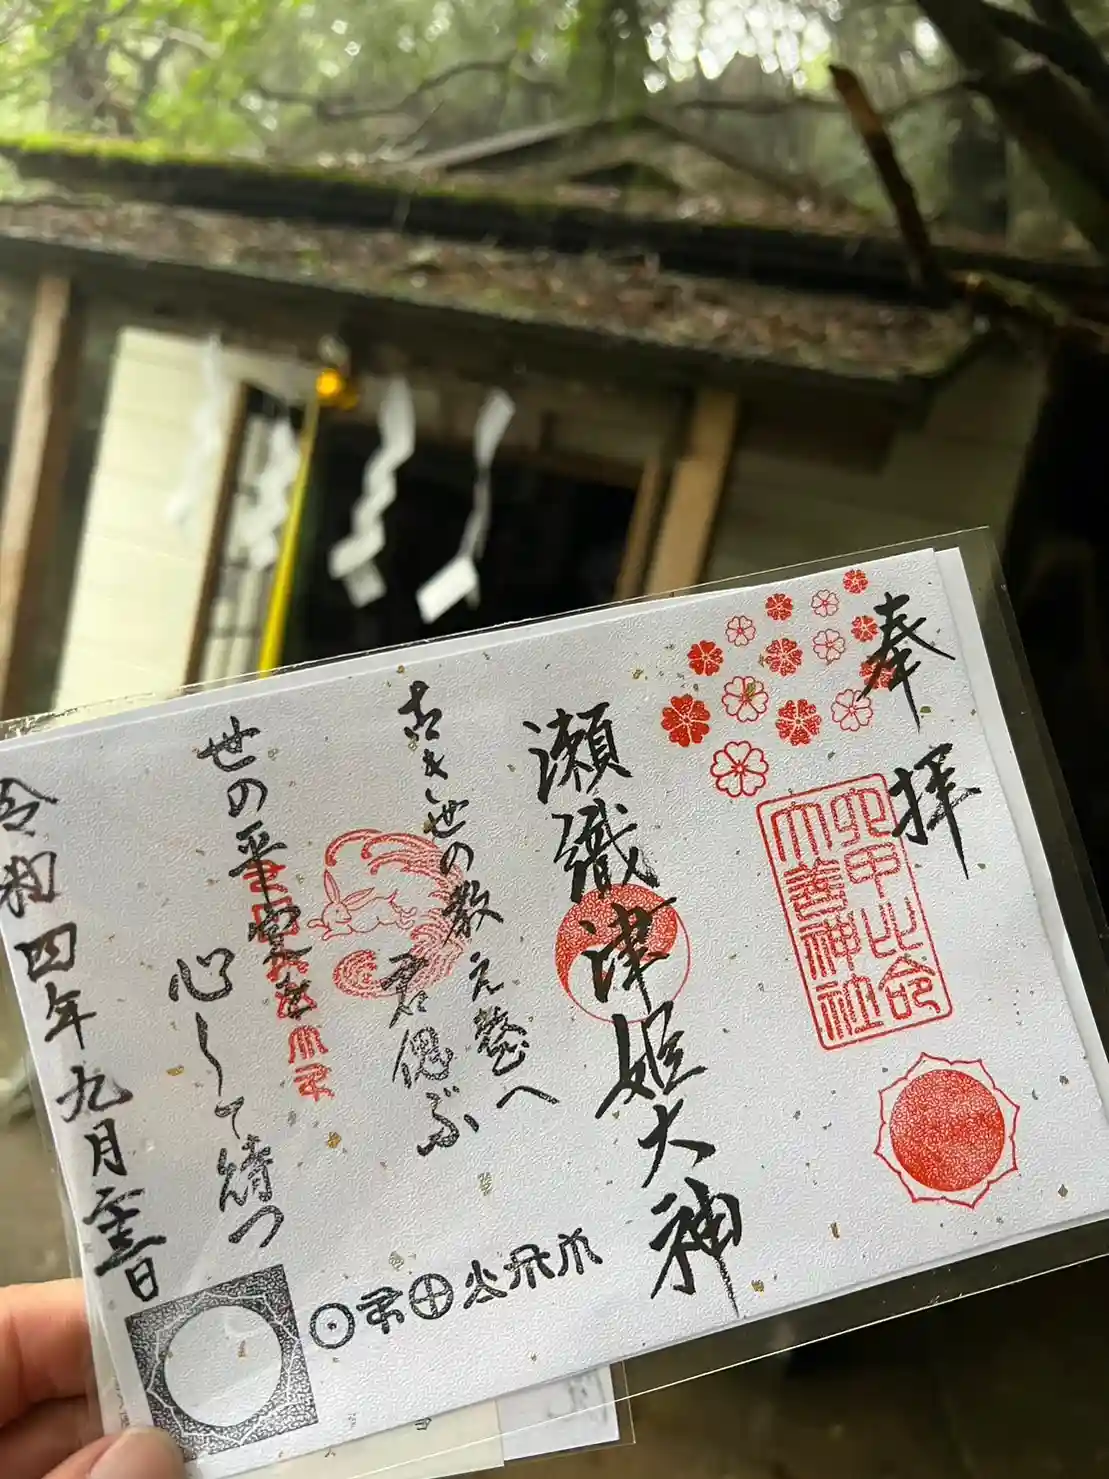 奉拝
六甲比命
大善神社
瀬織津姫大神
古き世の教え整へ
君偲ぶ
世の平安を
心して待つ
令和四年九月
日